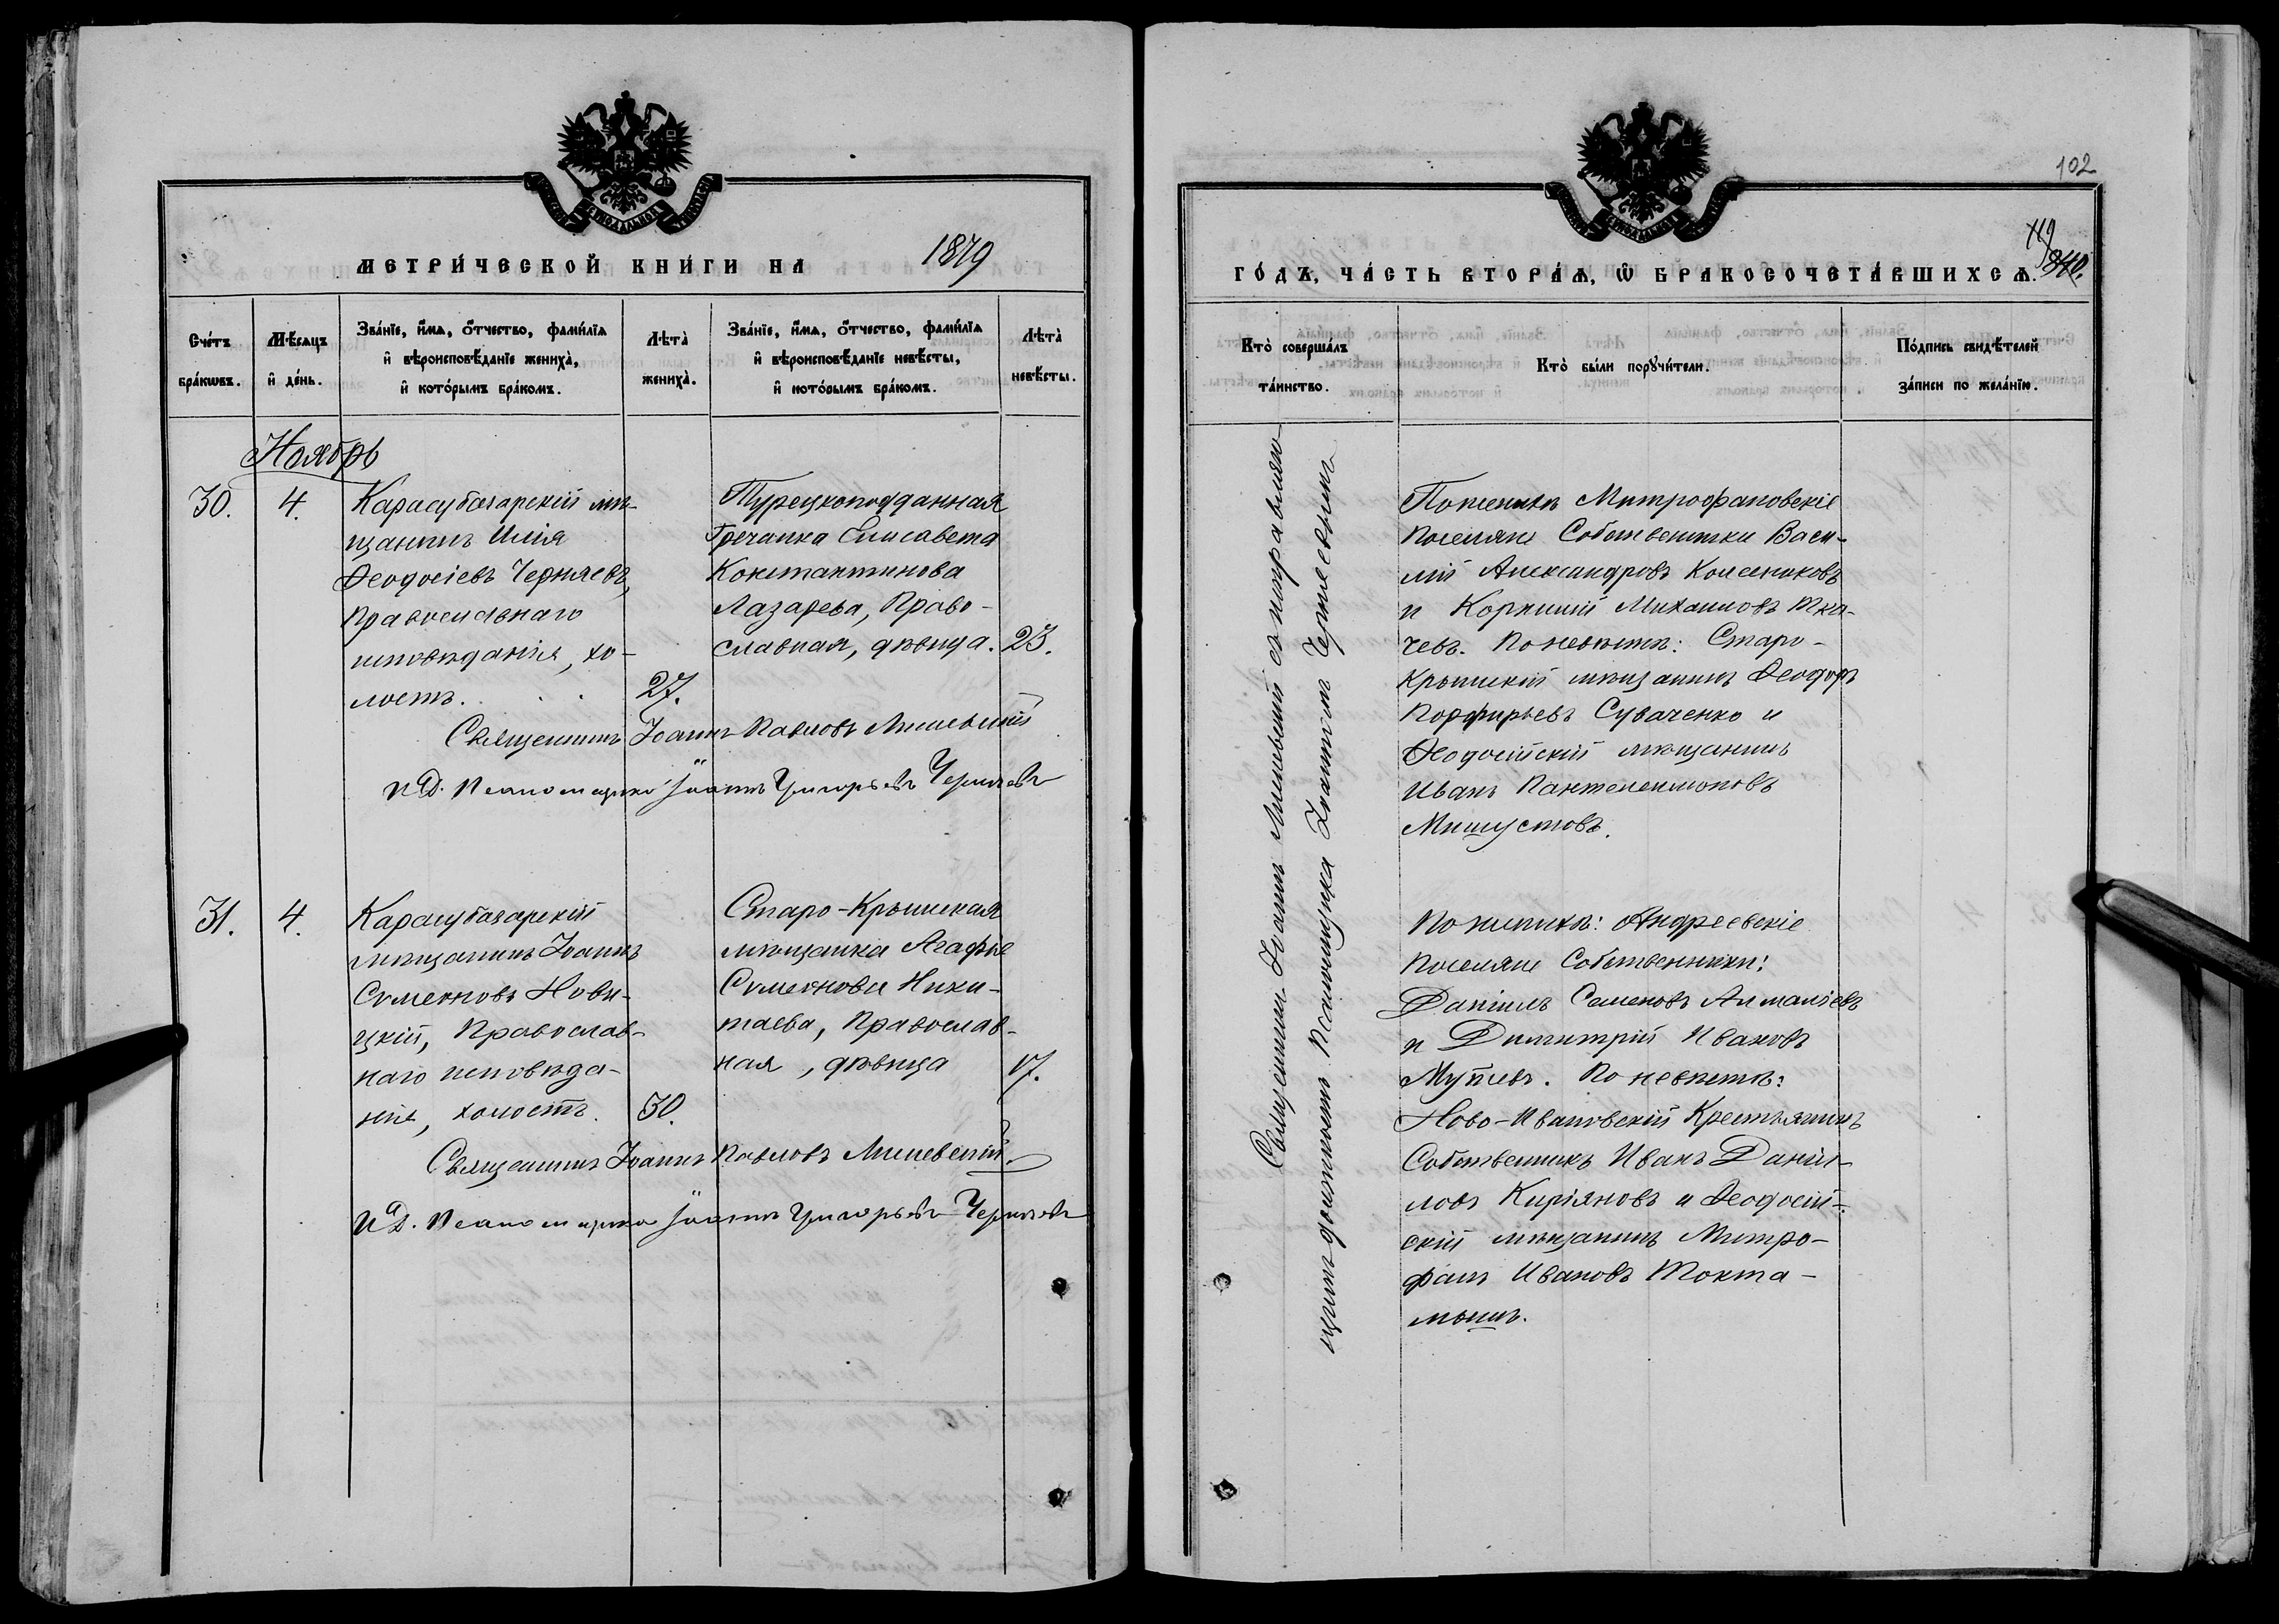 МЕТРИ́ЧЕСКОЙ КНИ́ГИ НА 1879
Сче́тъ бра́кѡвъ.
Мѣ́сяцъ и҆ де́нь.
Зва́нїе, и҆́мѧ, ѻ҆́тчество, фами́лїѧ
и҆ вѣроисповѣ́данїе жениха̀,
и҆ кото́рымъ бра́комъ.
Лѣта̀
жениха̀.
Зва́нїе, и҆́мѧ, ѻ҆́тчество, фами́лїѧ
и҆ вѣроисповѣ́данїе невѣ́сты,
и҆ кото́рымъ бра́комъ.
Лѣта̀
невѣ́сты.
Ноябрь
30.
4.
Карасубазарскій мѣ-
щанинъ Илія
Ѳеодосіевъ Черняевъ,
Православнаго
исповѣданія, хо-
лостъ.
27.
Турецкоподданная
Гречанка Елисавета
Константинова
Лазарева, Право-
славная, дѣвица.
23.
Священникъ Іоаннъ Павловъ
и д. Псаломщика Іоаннъ Григорьевъ Черняевъ
31.
4.
Карасубазарскій
мѣщанинъ Іоаннъ
Симеоновъ Нови-
цкій, Православ-
наго исповѣда-
нія, холостъ.
30.
Старо-Крымская
мѣщанка Агафія
Симеонова Ники-
таева, Православ-
ная, дѣвица
17.
Священникъ Іоаннъ Павловъ
и д. Псаломщика Іоаннъ Григорьевъ Черняевъ
102
119
ГО́ДЪ, ЧА́СТЬ ВТОРА́Ѧ, Ѡ҆ БРАКОСОЧЕТА́ВШИХСѦ.
Кто̀ соверша́лъ
та́инство.
Кто̀ бы́ли поручи́тели.
По́дпись свидѣ́телей
за́писи по жела́нїю.
Священникъ Іоаннъ съ исправляю-
щимъ должность Псаломщика Іоанномъ Черняевымъ
По женихѣ Митрофановскіе
Поселяне Собственники Васи-
лій Александровъ Колесниковъ
и Корнилій Михаиловъ Тка-
чевъ. По невѣстѣ: Старо-
Крымскій мѣщанинъ Ѳеодоръ
Порфирьевъ Суваченко и
Ѳеодосійскій мѣщанинъ
Иванъ Пантелеимоновъ
Мишустовъ.
По женихѣ: Андреевскіе
Поселяне Собственники:
Даніилъ Семеновъ Алмаліевъ
и Димитрій Ивановъ
По невѣстѣ:
Ново-Ивановскій Крестьянинъ
Собственникъ Иванъ Даніи-
ловъ Киріяновъ и Ѳеодосій-
скій мѣщанинъ Митро-
фанъ Ивановъ Токта-
мышъ.